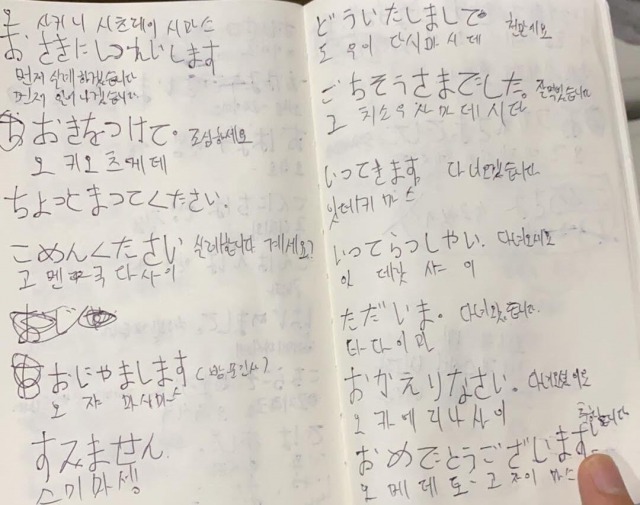 오 사키니 시츠데이 시마스
おさきにしつれいします
먼저 실례하겠습니다
먼저 일어나겠습니다.
おきをつけて。 조심하세요
오 키오 츠케데
ちょっとまってください.
ごめんください 실례합니다 계세요?
고 멘 쿠 다 사 이
おじゃまします (방문인사)
오 쟈 마 시마스
すみません.
스 미 마 셍
どういたしまして。 천만에요
도 우 이 다 시 마 시 데
ごちそうさまでした。 잘먹었습니다
고 치소 우 사 마 데 시 다
いってきます。 다녀오겠습니다.
잇 데 키 마 스
いってらっしゃい. 다녀오세요
잇 데 랏 샤 이
ただいま。 다녀왔습니다.
타 다 이 마
おかえりなさい. 다녀오셨어요
오 카 에 리 나 사 이
축하합니다
おめでとうございます.
오 메 데 토- 고 자이 마스